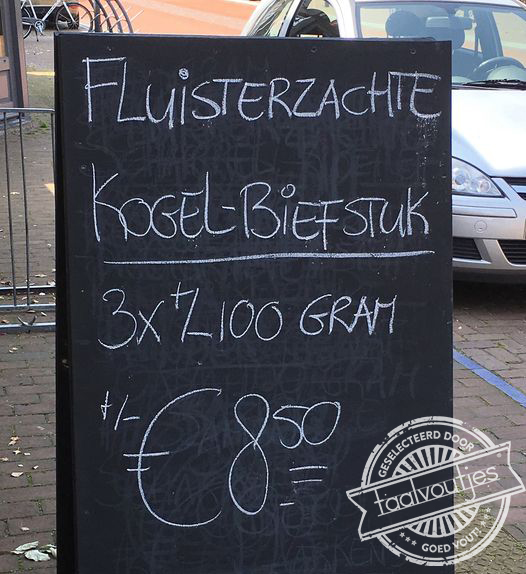 FLUISTERZACHTE
KOGEL-BIEFSTUK
3X +/- 100 GRAM
+/- € 8,50
GESELECTEERD DOOR
taalvoutjes
GOED VOUT!